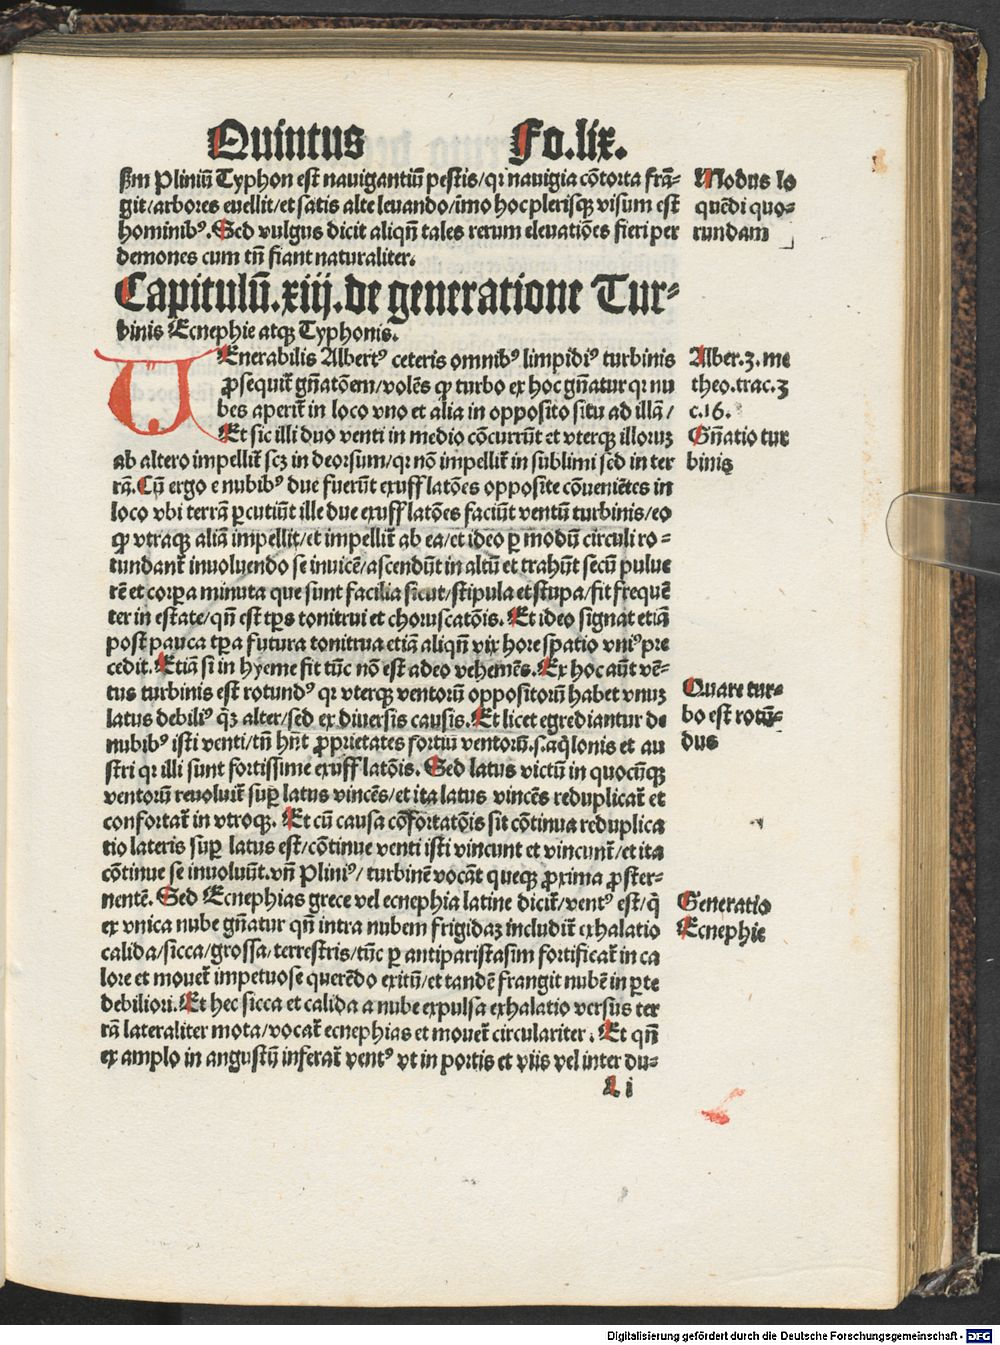 Quintus Fo.lix.
ẜm Pliniū Typhon est nauigantiū pestis/qꝛ nauigia cōtorta frā-
git/arbores euellit/et satis alte leuando/īmo hoc plerisqꝫ visum est
hominibꝰ. Sed vulgus dicit aliqn̄ tales rerum eleuatiōes fieri per
demones cum tn̄ fiant naturaliter.
Modus lo
quēdi quo-
rundam
Capitulū.xiij.de generatione Tur-
binis Ecnephie atqꝫ Typhonis.
VEnerabilis Albertꝰ ceteris omnibꝰ limpidiꝰ turbinis
ꝓsequit̄ gn̄atōem/volēs ꝙ turbo ex hoc gn̄atur qꝛ nu
bes aperit̄ in loco vno et alia in opposito situ ad illā/
Et sic illi duo venti in medio cōcurrūt et vterqꝫ illoruꝫ
ab altero impellit̄ scꝫ in deorsum/qꝛ nō impellit̄ in sublimi sed in ter
rā. Cū ergo e nubibꝰ due fuerūt exufflatōes opposite cōueniētes in
loco vbi terrā ꝑcutiūt ille due exufflatōes faciūt ventū turbinis/eo
ꝙ vtraqꝫ aliā impellit/et impellit̄ ab ea/et ideo ꝑ modū circuli ro-
tundant̄ inuoluendo se inuicē/ascendūt in altū et trahūt secū pulue
rē et corꝑa minuta que sunt facilia sicut/stipula et stupa/fit frequē
ter in estate/qn̄ est tp̄s tonitrui et choruscatōis. Et ideo signat etiā
post pauca tp̄a futura tonitrua etiā aliqn̄ vix hore spatio vniꝰ pre
cedit. Etiā si in hyeme fit tūc nō est adeo vehemēs. Ex hoc aūt vē-
tus turbinis est rotundꝰ qꝛ vterqꝫ ventorū oppositorū habet vnuꝫ
latus debiliꝰ qꝫ alter/sed ex diuersis causis. Et licet egrediantur de
nubibꝰ isti venti/tn̄ hn̄t ꝓprietates fortiū ventorū.s.aq̄lonis et au
stri qꝛ illi sunt fortissime exufflatōis. Sed latus victū in quocūqꝫ
ventorū reuoluit̄ suꝑ latus vincēs/et ita latus vincēs reduplicat̄ et
confortat̄ in vtroqꝫ. Et cū causa cōfortatōis sit cōtinua reduplica
tio lateris suꝑ latus est/cōtinue venti isti vincunt et vincunt̄/et ita
cōtinue se inuoluūt.vn̄ Pliniꝰ/ turbinē vocāt queqꝫ ꝓxima ꝓster-
nentē. Sed Ecnephias grece vel ecnephia latine dicit̄/ventꝰ est/q̄
ex vnica nube gn̄atur qn̄ intra nubem frigidaꝫ includit̄ exhalatio
calida/sicca/grossa/terrestris/tūc ꝑ antiparistasim fortificat̄ in ca
lore et mouet̄ impetuose querēdo exitū/et tandē frangit nubē in ꝑte
debiliori. Et hec sicca et calida a nube expulsa exhalatio versus ter
rā lateraliter mota/vocat̄ ecnephias et mouet̄ circulariter. Et qn̄
ex amplo in angustū inferat̄ ventꝰ vt in portis et viis vel inter du-
Alber.3. me
theo.trac.3
c.16.
Gn̄atio tur
binis
Quare tur-
bo est rotū-
dus
Generatio
Ecnephie
i
Digitalisierung gefördert durch die Deutsche Forschungsgemeinschaft - DFG